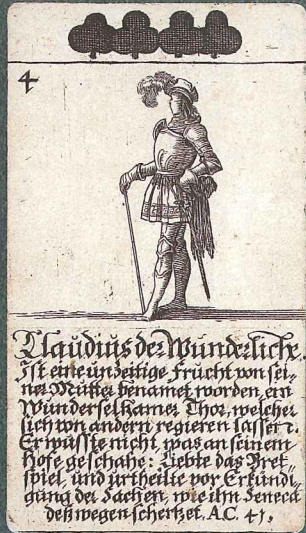 4
Claudius der Wunderliche.
Ist eine unzeitige Frucht von sei-
ner Mutter benamet worden, ein
Wunderselkamer Thor, welcher
sich von andern regieren lassen.
Er wusste nicht, was an seinem
Hofe geschahe: Liebte das Bret-
spiel, und urtheilte vor Erkündi-
gung der Sachen, wie ihn Seneca
deßwegen scherket. A.C. 41.